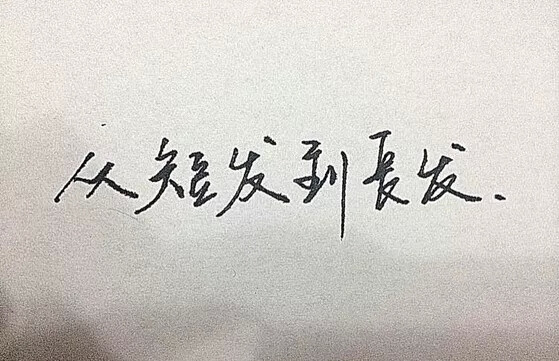 从短发到長发.